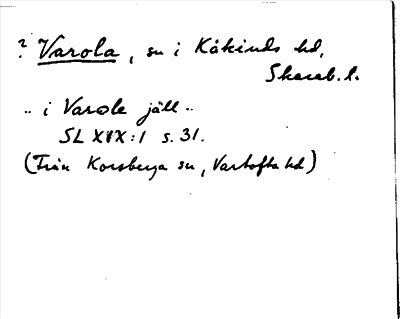 ? Varola, sn i Kåkinds hd,
Skarab. l.
.. i Varole jäll ..
SL XIX:1 s. 31.
(Från Korsberga sn, Vartofta hd)